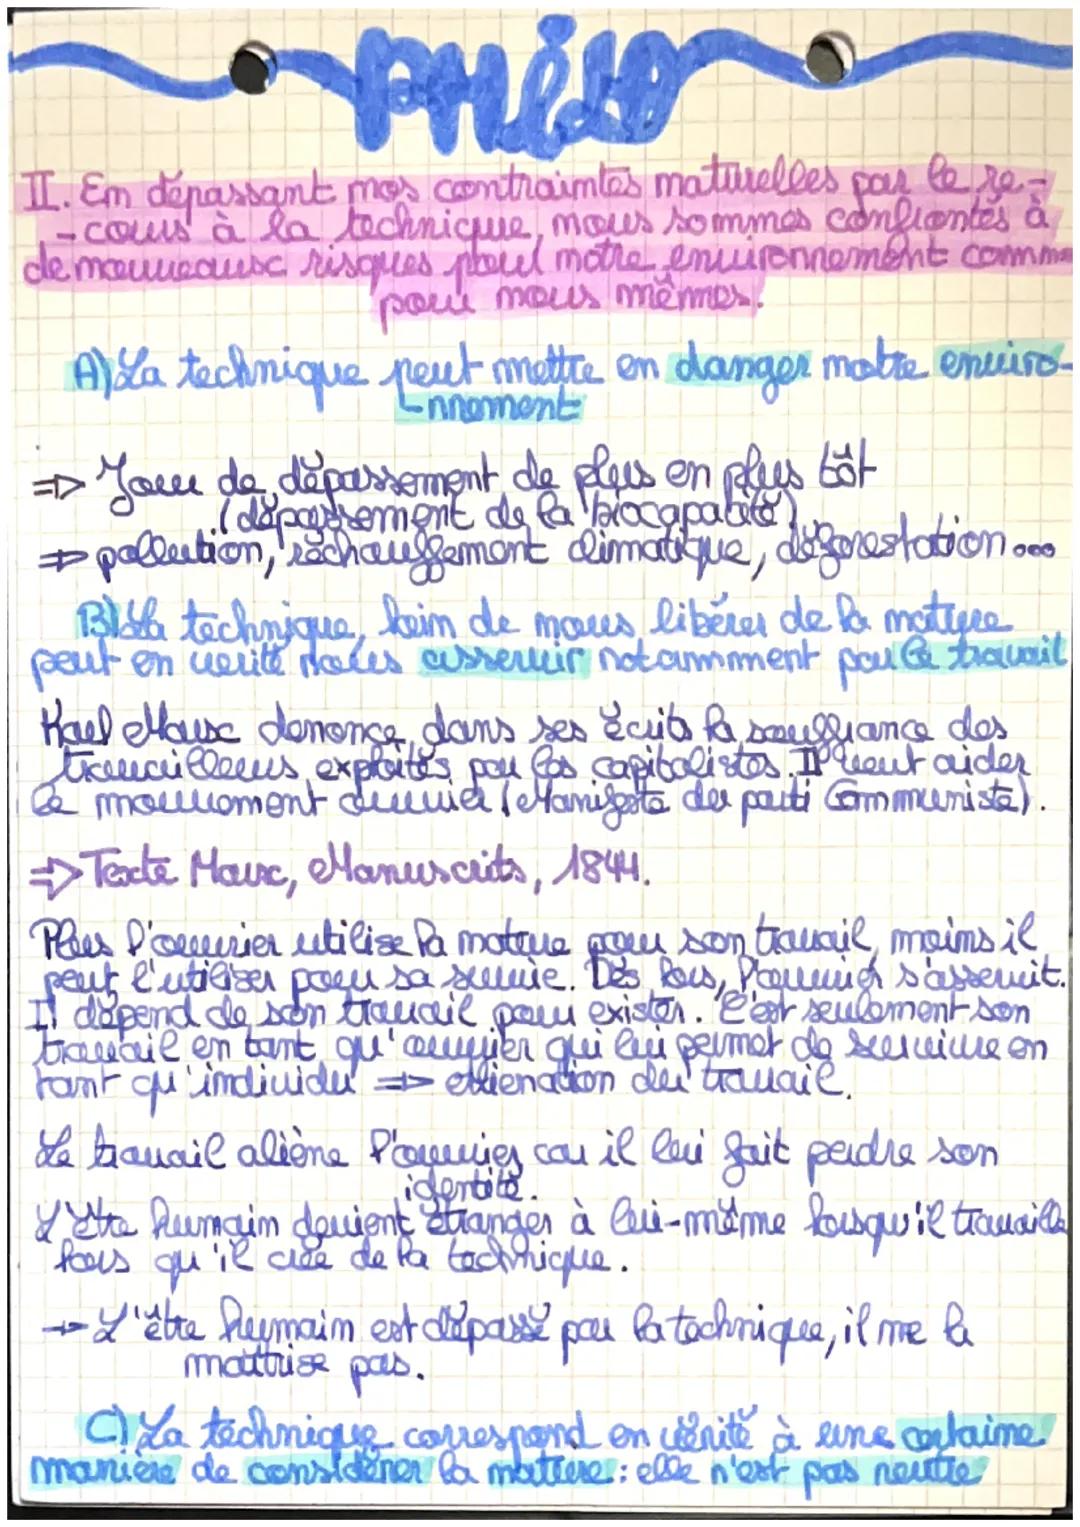 philo
II. En dépassant nos contraintes naturelles par le re-
-cours à la technique, nous sommes confrontés à
de nouveaux risques pour notre environnement comme
pour nous mêmes.
A) La technique peut mettre en danger notre enviro-
-nnement
⇒ Jour de dépassement de plus en plus tôt
(dépassement de la biocapacité)
⇒ pollution, réchauffement climatique, déforestation...
B) La technique, loin de nous libérer de la nature
peut en vérité nous asservir notamment par le travail
Karl Marx dénonce dans ses écrits la souffrance des
travailleurs exploités par les capitalistes. Il veut aider
le mouvement ouvrier (Manifeste du parti Communiste).
⇒ Texte Marx, Manuscrits, 1844.
Plus l'ouvrier utilise la nature pour son travail, moins il
peut l'utiliser pour sa survie. Dès lors, l'ouvrier s'asservit.
Il dépend de son travail pour exister. C'est seulement son
travail en tant qu'ouvrier qui lui permet de survivre en
tant qu'individu ⇒ aliénation du travail.
Le travail aliène l'ouvrier car il lui fait perdre son
identité.
L'être humain devient étranger à lui-même lorsqu'il travaille
lors qu'il crée de la technique.
→ L'être humain est dépassé par la technique, il ne la
maîtrise pas.
C) La technique correspond en vérité à une certaine
manière de considérer la nature : elle n'est pas neutre